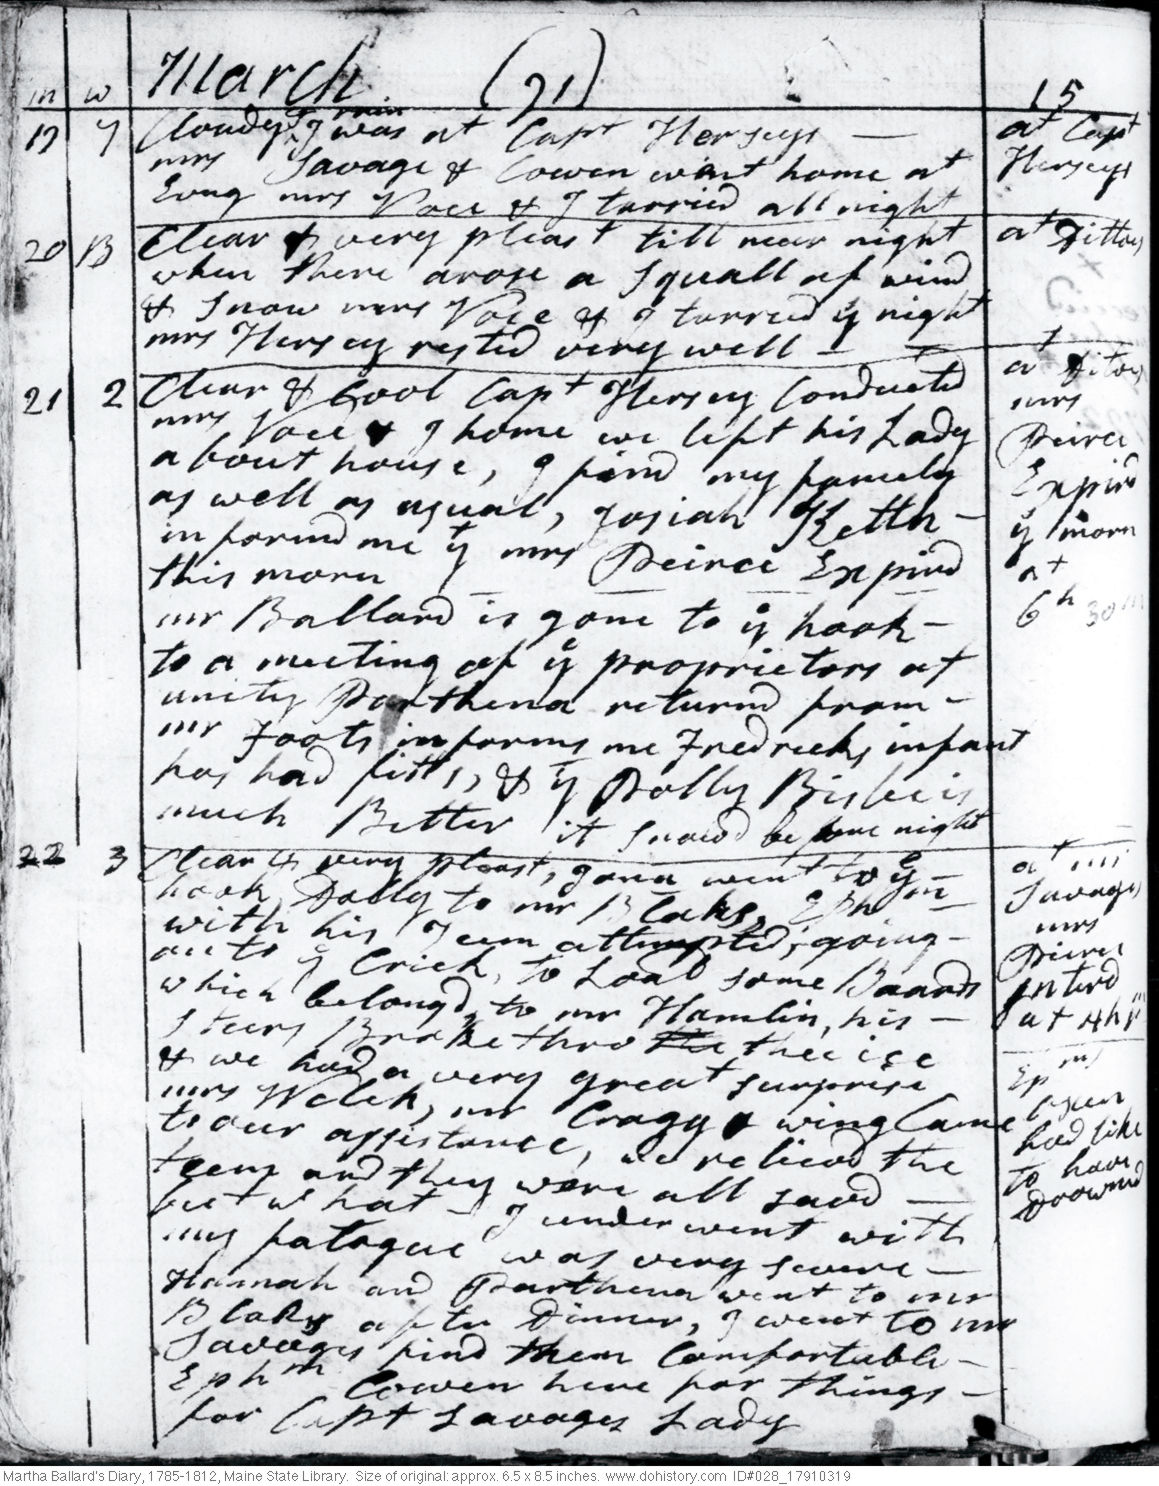 m w March (91) 15
19 7 Cloudy & rain I was at Capt Herseys — at Capt
mrs Savage & Cowen wint home at Herseys
Evng mrs Voce & I tarried all night
20 B Clear & very pleast till near night at Dittoes
when there arose a Squall of wind
& Snow mrs Voce & I tarried ÿ night
mrs Hersey rested very well —
21 2 Clear & Cool Capt Hersey Conducted at Ditoes
mrs Voce & I home we left his Lady mrs
about house, I find my famely Peirce
as well as usual, Josiah Kettn — Expird
informd me ÿ mrs Peirce Expird ÿ morn
this morn at
mr Ballard is gone to ÿ hook — 6h 30m
to a meeting of ÿ proprietors at
unity Parthena returnd from —
mr Foots informs me Fredricks infant
has had fitts, & ÿ Dolly Bisbe is
much Better it snowd before night
22 3 Clear & very pleast, Jona went to ÿ — at mr
hook, Dolly to mr Blaks, Ephm — Savages
with his Teem attempted, going — mrs
on to ÿ Crick, to Load some Baards Peirce
which belongd, to mr Hamlin, his — intird
Steers Broke thro the thee ice at 4h p
& we had a very great surprise Epms
mrs Welch, mr Cragg & wing Came oxen
to our assistance, we relievd the had like
teem and they were all savd — to have
but what — I underwent with Drownd
my fatague was very severe —
Hannah and Parthena went to mr
Blaks after Dinner, I went to mr
Savages find them Comfortable —
Ephm Cowen here for things —
for Capt Savages Lady
Martha Ballard's Diary, 1785-1812, Maine State Library. Size of original: approx. 6.5 x 8.5 inches. www.dohistory.com ID#028_17910319